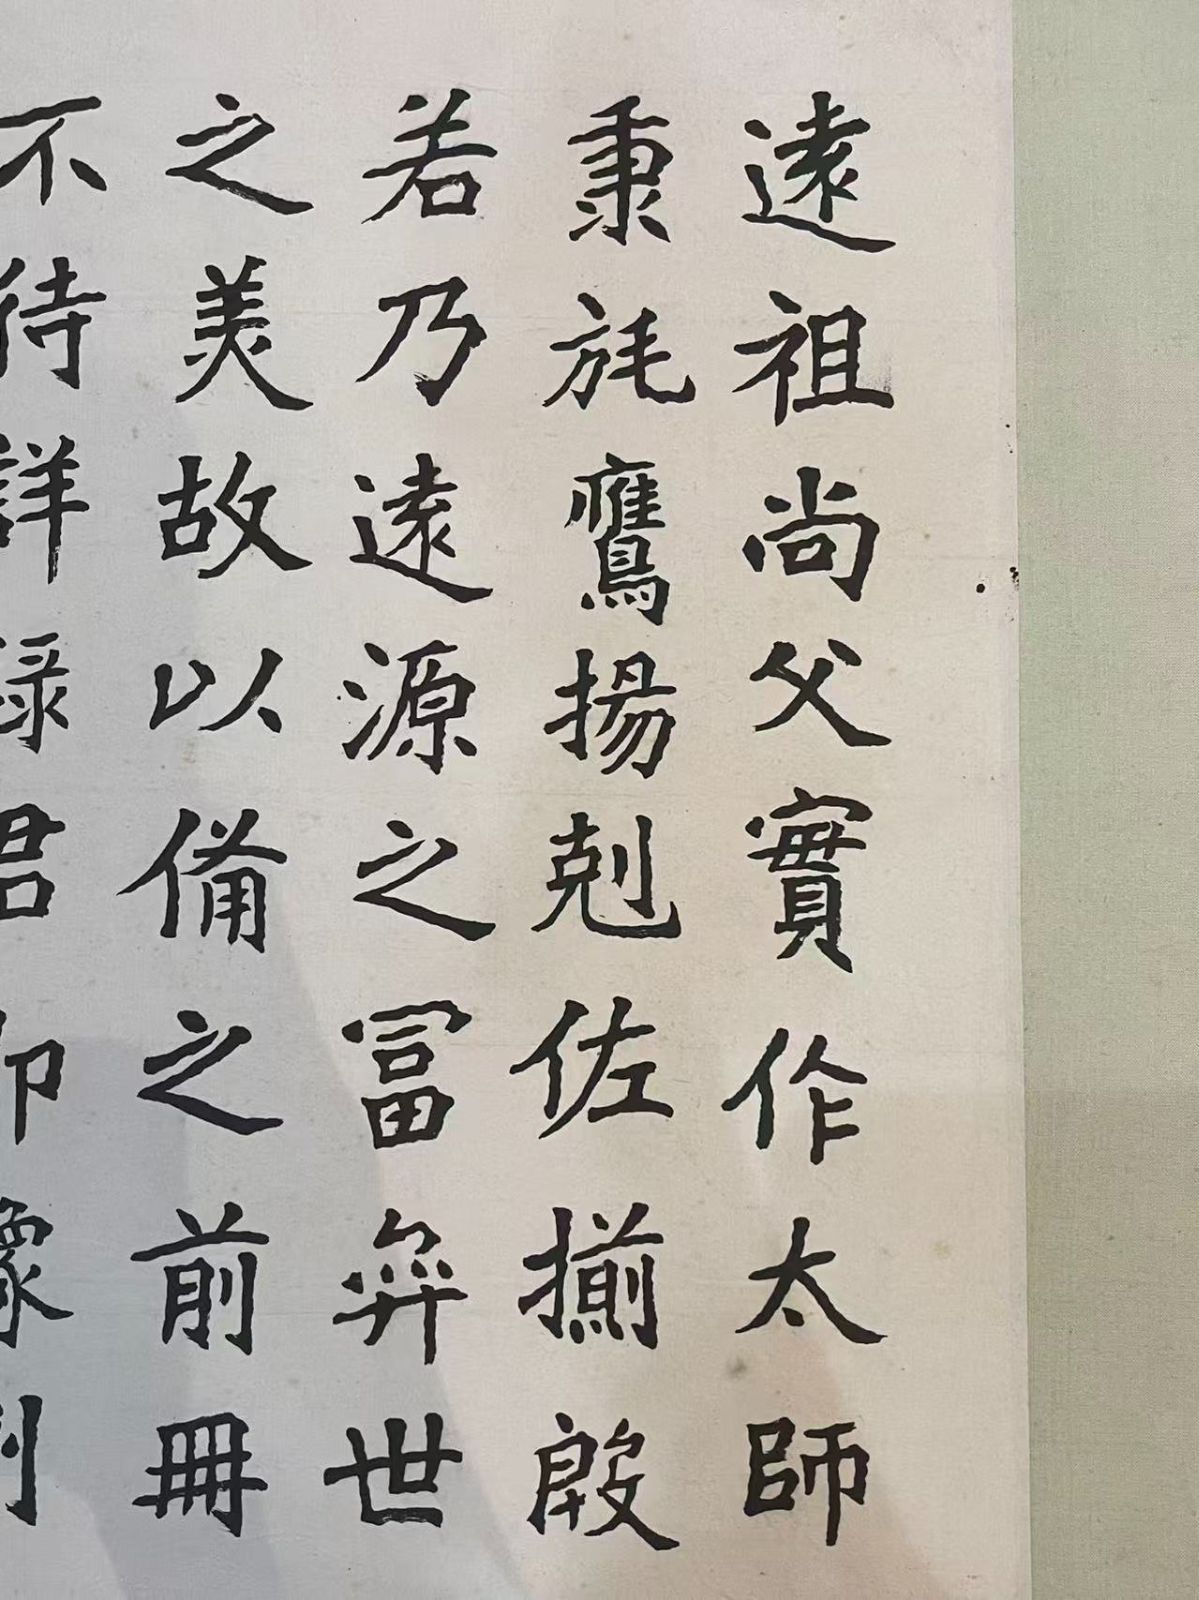 遠祖尚父實作太師
秉旄鷹揚剋佐揃殷
若乃遠源之冨弈世
之美故以備之前冊
不待詳録君即豫州